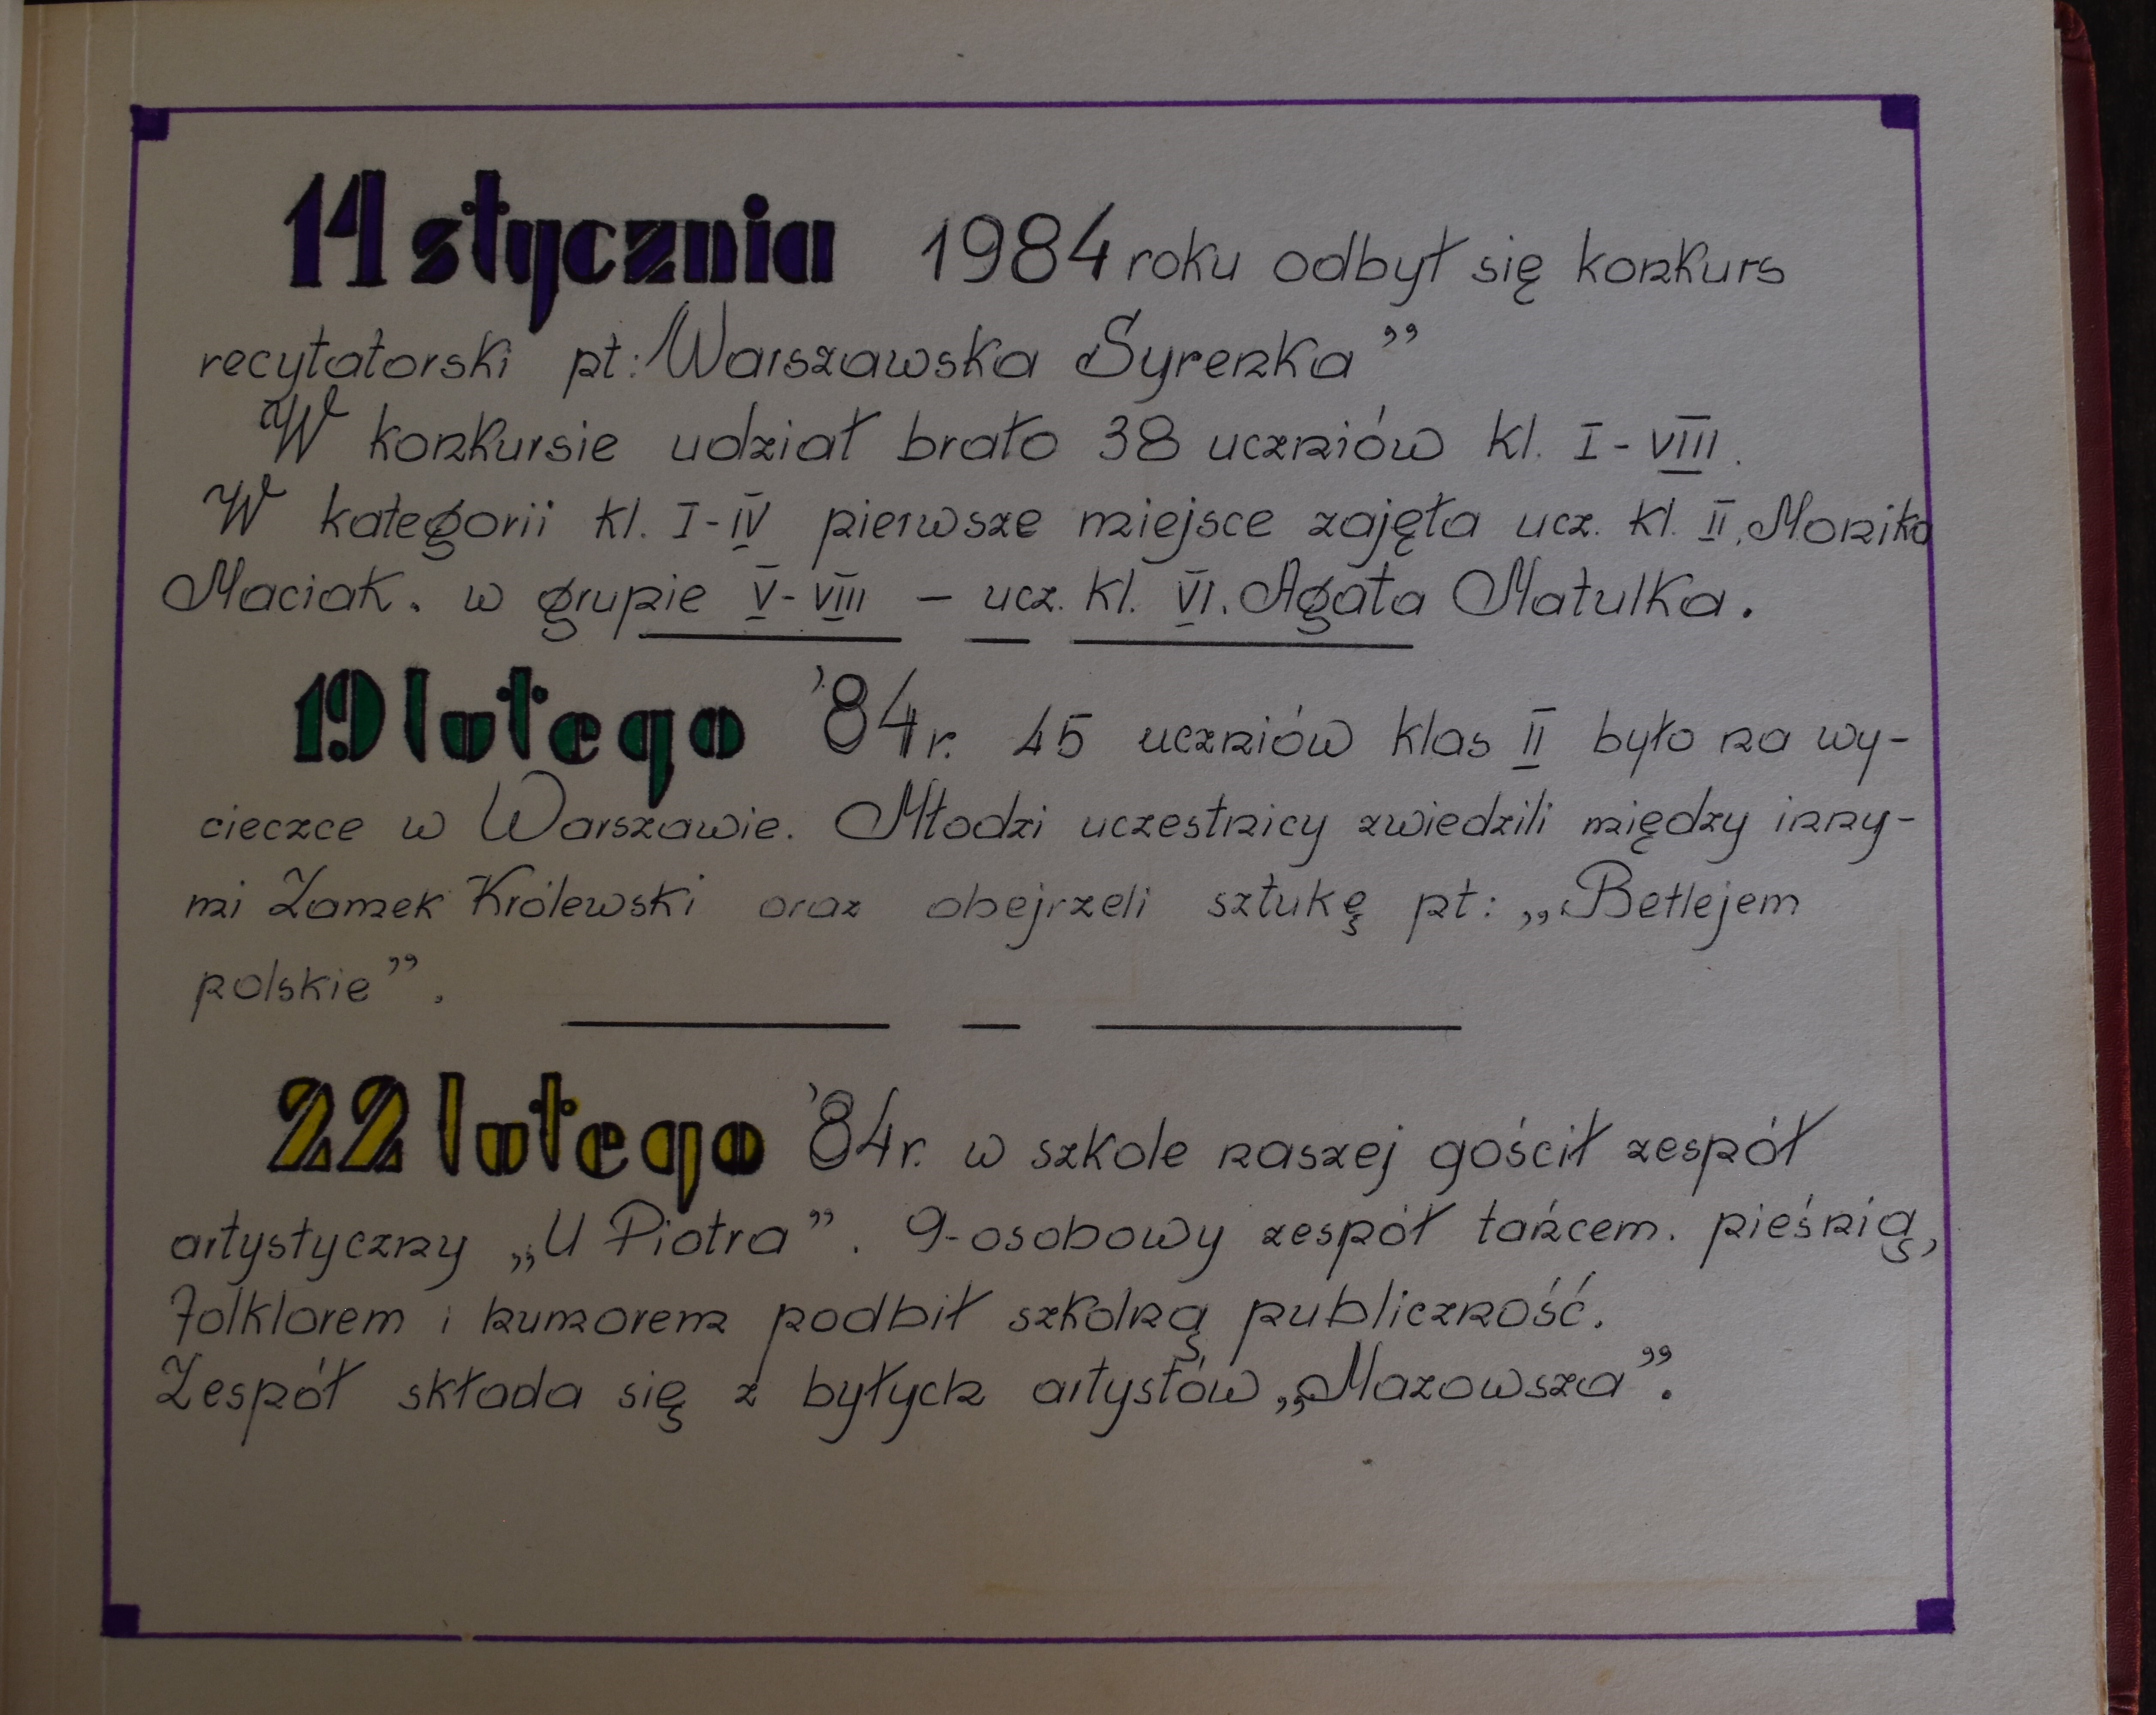 14 stycznia 1984 roku odbył się konkurs
recytatorski pt: Warszawska Syrenka”
W konkursie udział brało 38 uczniów kl. I - VIII.
W kategorii kl. I-IV pierwsze miejsce zajęła ucz. kl. II, Monika
Maciak. w grupie V-VIII – ucz. kl. VI. Agata Matulka.
19 lutego '84r. 45 uczniów klas II było na wy-
cieczce w Warszawie. Młodzi uczestnicy zwiedzili między inny-
mi Zamek Królewski oraz obejrzeli sztukę pt: „Betlejem
polskie”.
22 lutego '84r. w szkole naszej gościł zespół
artystyczny „U Piotra”. 9-osobowy zespół tańcem. pieśnią,
folklorem i humorem podbił szkolną publiczność.
Zespół składa się z byłych artystów „Mazowsza”.